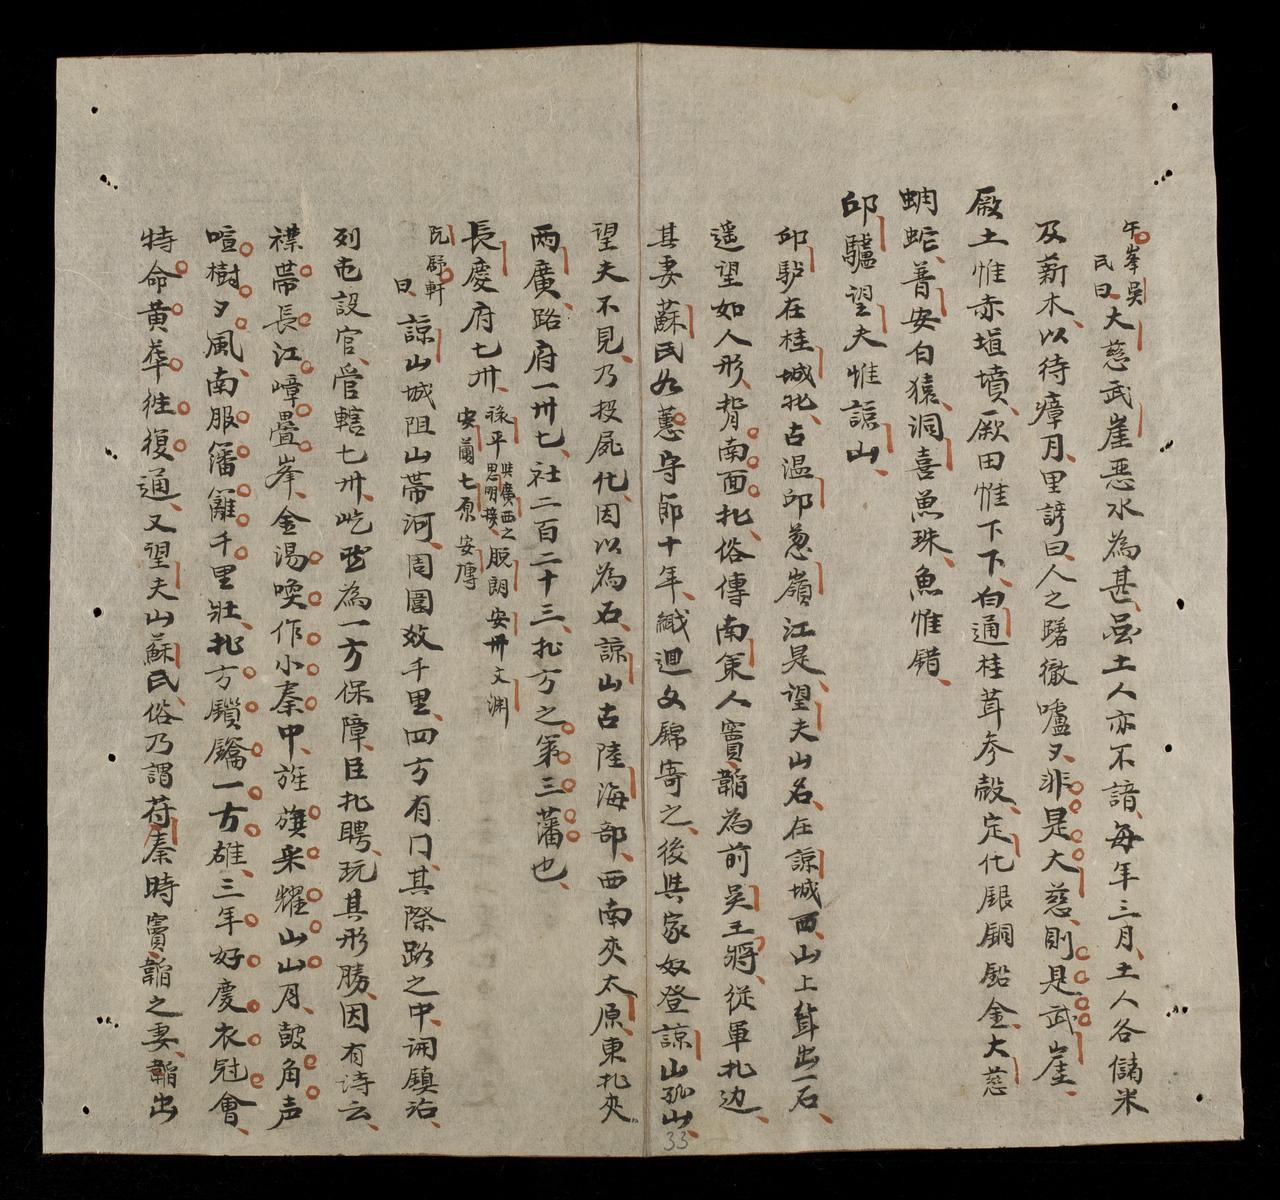 午峯吳氏曰大慈武崖惡水為甚虽土人亦不諳每年三月土人各儲米
及薪木以待瘴月里諺曰人之躇徹嚧夕非是大慈則是武崖
厥土惟赤埴墳厥田惟下下白通桂茸参殻定化銀銅鉛金大慈
蜩蛇普安白猿洞喜魚珠魚惟錯
邱驢望夫惟諒山
邱馿在桂城北古温邱葱嶺江是望夫山名在諒城西山上聳出一石
遥望如人形背南面北俗傳南策人竇韜為前吳王將從軍北边
其妻蘇氏若蕙守節十年織迴文錦寄之後與家奴登諒山孤山
望夫不見乃投屍化因以為石諒山古陸海部西南夾太原東北夾
兩廣路府一卅七社二百二十三北方之第三藩也
長慶府七卅祿平與廣西之思明接脱朗安卅文渊安蘭七原安慱
阮舒軒曰諒山城阻山帶河周圍效千里四方有门其際路之中開鎮治
列屯設官管轄七卅屹然為一方保障臣北聘玩其形勝因有诗云
襟帶長江嶂疊峯金湯喚作小秦中旌旗采耀山山月皷角声
喧樹夕風南服藩籬千里壯北方鎖鑰一方雄三年好慶衣冠會
特命黄華徃復通又望夫山蘇氏俗乃謂苻秦時竇韜之妻韜出
33